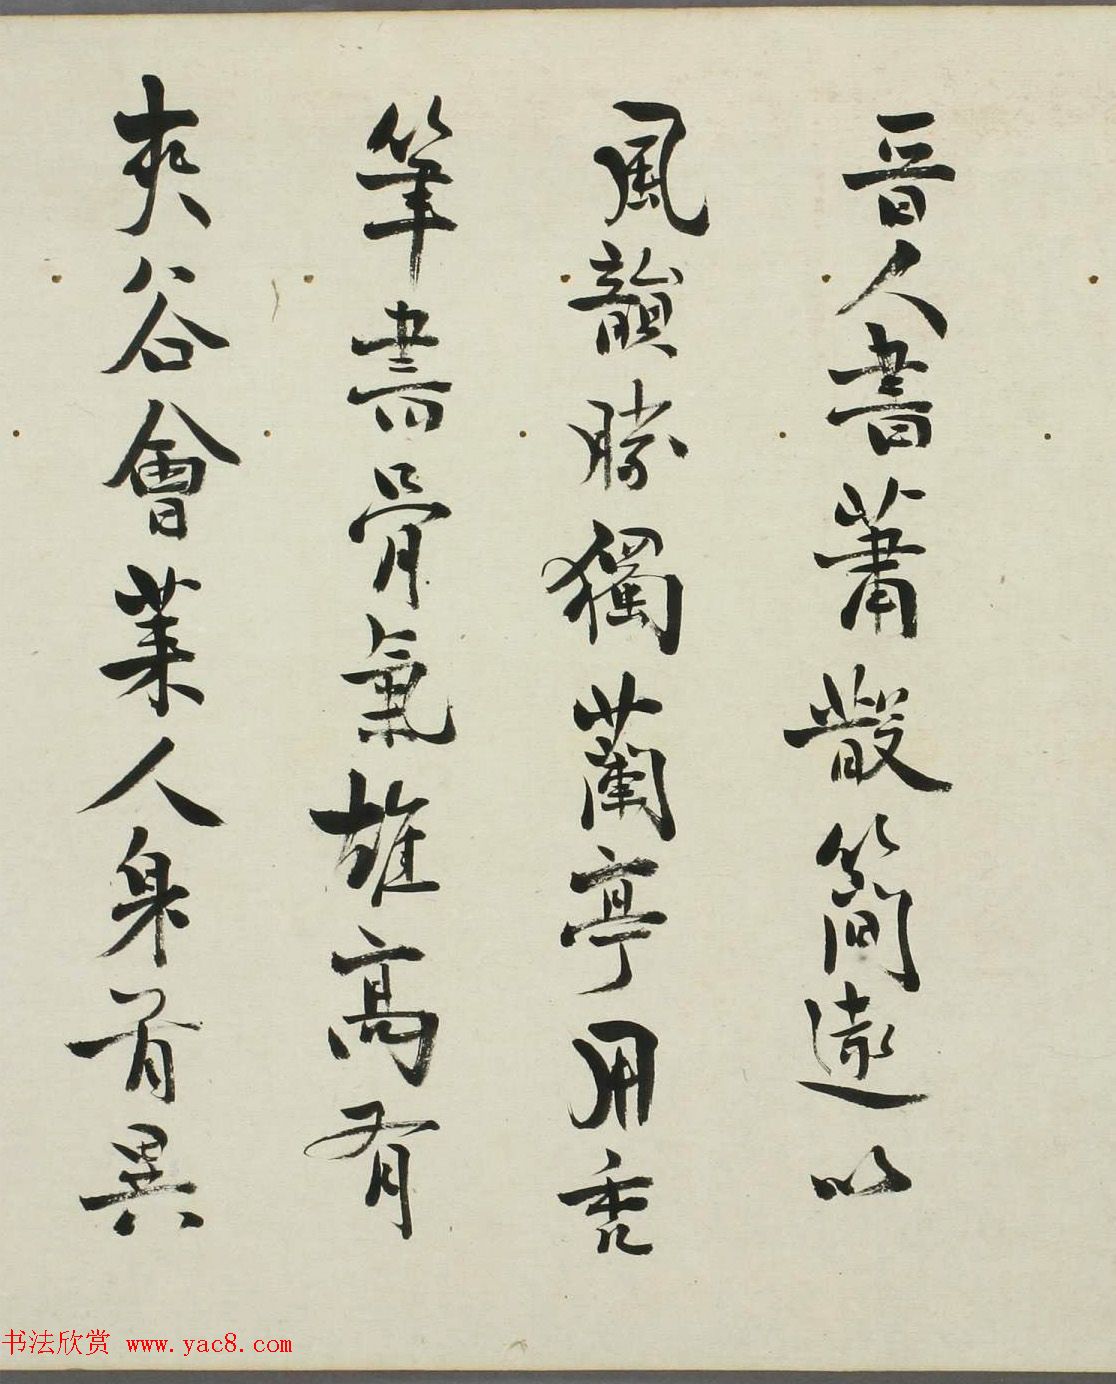 晉人書蕭散簡遠以
風韻勝獨蘭亭用禿
筆書骨氣雄高有
夾谷會萊人身首異
书法欣赏 www.yac8.com